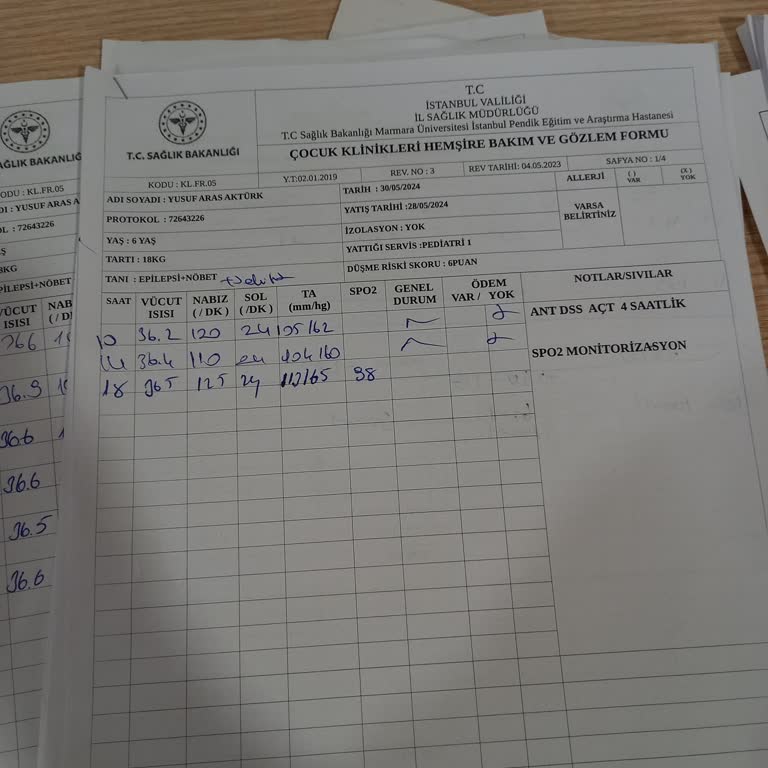 T.C
İSTANBUL VALİLİĞİ
İL SAĞLIK MÜDÜRLÜĞÜ
T.C Sağlık Bakanlığı Marmara Üniversitesi İstanbul Pendik Eğitim ve Araştırma Hastanesi
ÇOCUK KLİNİKLERİ HEMŞİRE BAKIM VE GÖZLEM FORMU
T.C. SAĞLIK BAKANLIĞI
KODU : KL.FR.05 Y.T:02.01.2019 REV. NO : 3 REV TARİHİ: 04.05.2023 SAFYA NO : 1/4
ADI SOYADI : YUSUF ARAS AKTÜRK TARİH : 30/05/2024 ALLERJİ ( ) VAR (X) YOK
PROTOKOL : 72643226 YATIŞ TARİHİ :28/05/2024 VARSA BELİRTİNİZ
YAŞ : 6 YAŞ İZOLASYON : YOK
TARTI : 18KG YATTIĞI SERVİS :PEDİATRİ 1
TANI : EPİLEPSİ+NÖBET DÜŞME RİSKİ SKORU : 6PUAN
SAAT VÜCUT ISISI NABIZ ( / DK ) SOL ( /DK ) TA (mm/hg) SPO2 GENEL DURUM ÖDEM VAR / YOK NOTLAR/SIVILAR
10 36.2 120 24 105/62
ANT DSS AÇT 4 SAATLİK
14 36.4 110 24 104/60
SPO2 MONİTORİZASYON
18 365 125 24 112/65 98
AĞLIK BAKANLIĞ
KODU : KL.FR.05
DI : YUSUF ARAS A
OL : 72643226
Ş
8KG
PİLEPSİ+NÖBET
VÜCUT ISISI NAB ( / D
36.9
36.6
36.6
36.5
36.6